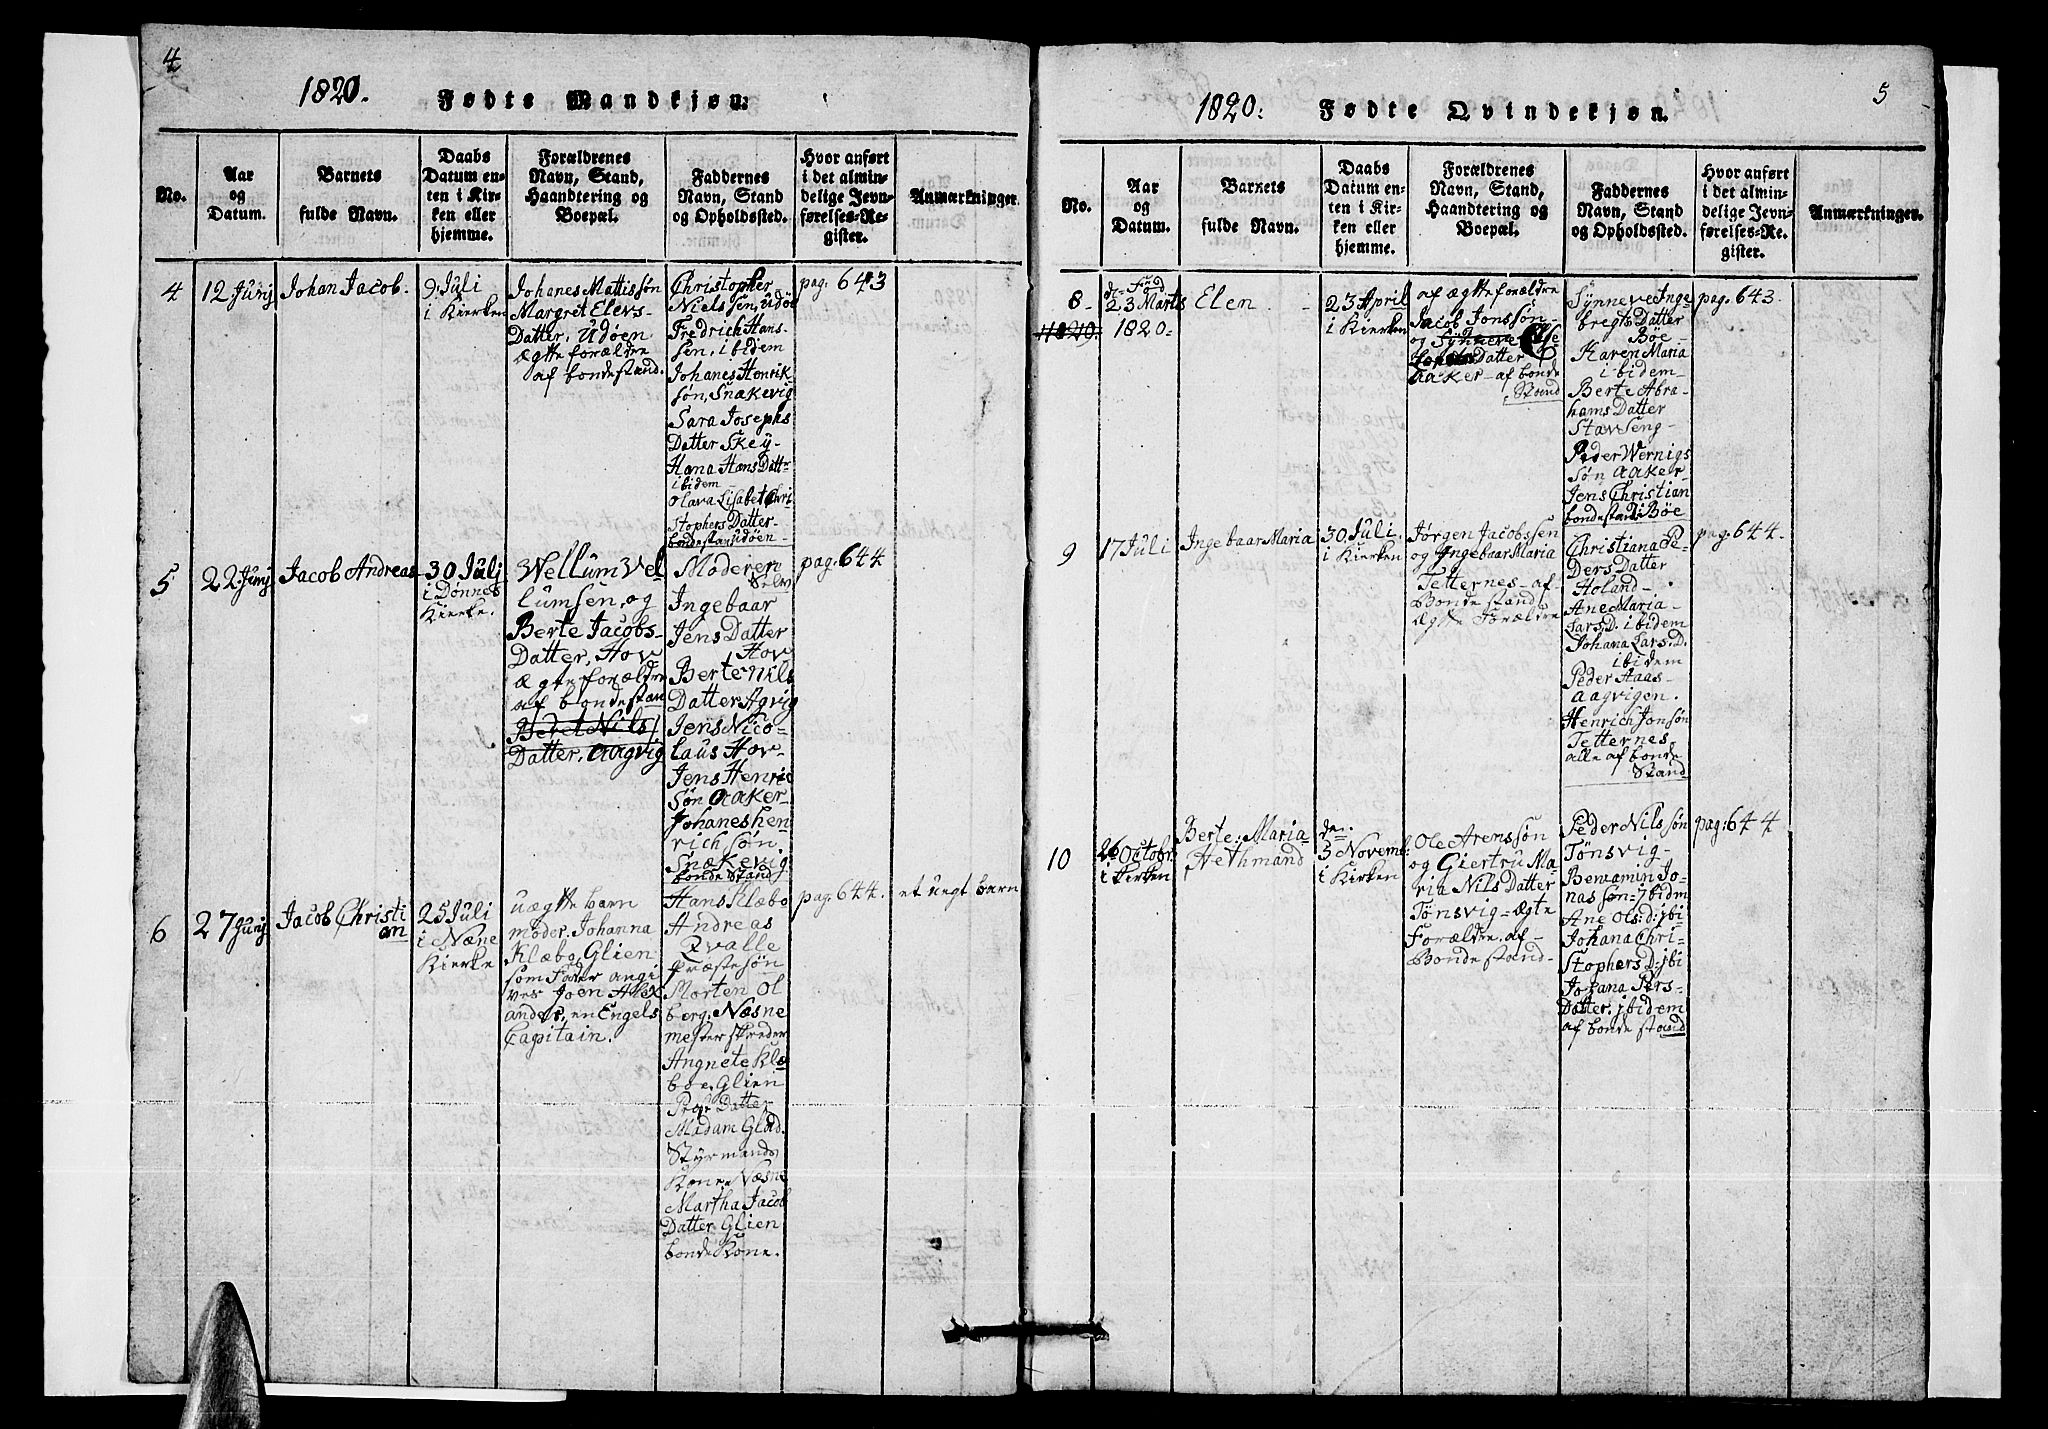 4
1820. Fødte Mandkjøn.
No.
Aar
og
Datum.
Barnets
fulde Navn.
Daabs
Datum en-
ten i Kir-
ken eller
hjemme.
Forældrenes
Navn, Stand,
Haandtering og
Boepæl.
Faddernes
Navn, Stand
og Opholdssted.
Hvor anført
i det almin-
delige Jevn-
førelses-Re-
gister.
Anmærkninger.
4
12 Junj
Johan Jacob.
9 Juli
i Kierken
Johanes Mattissøn
Margret Elevs-
Datter. Udøen
ægtte forældre
af bondestand.
Christopher
Nielssen, udøe
Fredrich Hans-
sen, ibidem
Johanes Henrik-
søn, Snækevig
Sara Josephs
Datter Skey-
Hana Hans Datt-
ibidem
Olava Lisabet Chri-
stophers Datter-
bondestan udøen-
pag. 643
5
22 Junj
Jacob Andreas
30 Julj
i Dønnes
Kierke.
Wellum Vel-
lumsen, og
Berte Jacobs-
Datter, Hov
ægte forældre
af bondestan
Beret Nils
Datter. Aagvig
Moderen
Selv
Ingebaar
Jens Datter
Hov
Berte Nils
Datter Agvig
Jens Nico-
laus Hov-
Jens Henric
søn Aaker-
Johanes hen-
rich søn
Snækevig
bonde stand
pag. 644
6
27 Junj
Jacob Christi
an
25 Juli
i Næne
Kierke
uægtte barn
moder. Johanna
Klæbo Glien
som Fader angi
ves Joen Alex
ander, en Engels
Capitain.
Hans Klæbo
Andreas
Qvalle
Præstesøn
Morten Ol
berg. Næsne
mester skreder
Angnete Klæ
boe. Glien
Datter
Madam Glad.
Styrmands
Kone Næsne
Martha Jacob
Datter Glien
bonde Kone.
pag. 644.
et uegt barn
5
1820. Fødte Qvindekjøn.
No.
Aar
og
Datum.
Barnets
fulde Navn.
Daabs
Datum en-
ten i Kir-
ken eller
hjemme.
Forældrenes
Navn, Stand,
Haandtering og
Boepæl.
Faddernes
Navn, Stand
og Opholdssted.
Hvor anført
i det almin-
delige Jevn-
førelses-Re-
gister.
Anmærkninger.
8
1820.
Fød
23 Marts
1820
Elen
23 April
i Kierken
af ægtteforældre
Jacob Jonssøn
og Synneve Else
Datter
Aaker af bonde
Stand
Synneve Inge
bregts Datter
Bøe
Karen Maria
ibidem
Berte Abra-
hams Datter
Stavseng
Peder Wernigs
søn Aaker
Jens Christian
bondestand i Bøe
pag. 643.
9
17 Juli
Ingebaar Maria
30 Juli.
i Kierken
Jørgen Jacobssen
og Ingebaar Maria
Tetternes - af
Bonde stand
Ægtte Forældre
Christiana Pe-
Ders Datter
Holand
Ane Maria
Lars D. ibidem
Johana Lars. D.
ibidem
Peder Haas
Aagvigen.
Henrich Jonsøn
Tetternes.
alle af bonde
Stand
pag. 644.
10
26 Octobr.
i kerken
Berte: Maria
Hethmand
den
3 Novemb:
i Kirken
Ole Arenssøn
og Giertru Ma
ria Nils Datter
Tønsvig - ægte
Forældre. af
Bonde stand-
Peder Nils søn
Tønsvig-
Beniamin Jo-
nas søn: jbidm
Ane Ols: d: jbi
Johana Chri-
Stophers D: jbi
Johana Pers-
Datter. jbidem
af bonde stand
pag: 644